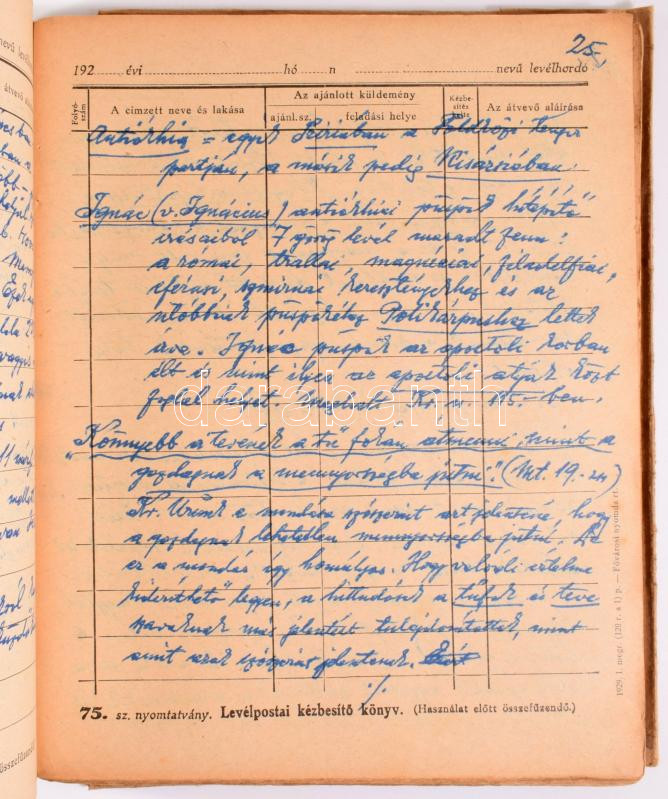 25.
192 ........ évi ........ hó ..... n ........ nevű levélhordó
Folyó-szám
A címzett neve és lakása
Az ajánlott küldemény
ajánl.sz.
feladási helye
Kézbe-sítés
Az átvevő aláírása
Antiórhia = egyik Szíriában a Földközi tenger
partján, a másik pedig Kisázsiában.
Ignác (v. Ignácius) antiórhiai püspök hitépítő
írásaiból 7 görög levél maradt fenn:
a római, trallai, magneziai, filadelfiai,
efezusi, szmirnai keresztényekhez és az
utóbbinak püspökéhez Polikárpushoz lettek
írva. Ignác püspök az apostoli korban
élt és mint ilyen az apostoli atyák közt
foglal helyet. Kr. u. 115.-ben.
"Könnyebb a tevenek a tű fokán átmenni, mint a
gazdagnak a mennyországba jutni". (Mt. 19.-24)
Kr. Urunk e mondása szószerint azt jelentené, hogy
a gazdagnak lehetetlen mennyországba jutni. De
ez a mondás így homályos. Hogy valódi értelme
kideríthető legyen, a hittudósok a tűfok és teve
szavaknak más jelentést tulajdonítottak, mint
amit azok szószerint jelentenek.
./.
75. sz. nyomtatvány. Levélpostai kézbesítő könyv. (Használat előtt összefűzendő.)
1929. I. megr. (120 r. à 1) p. — Fővárosi nyomda rt.
darabanth